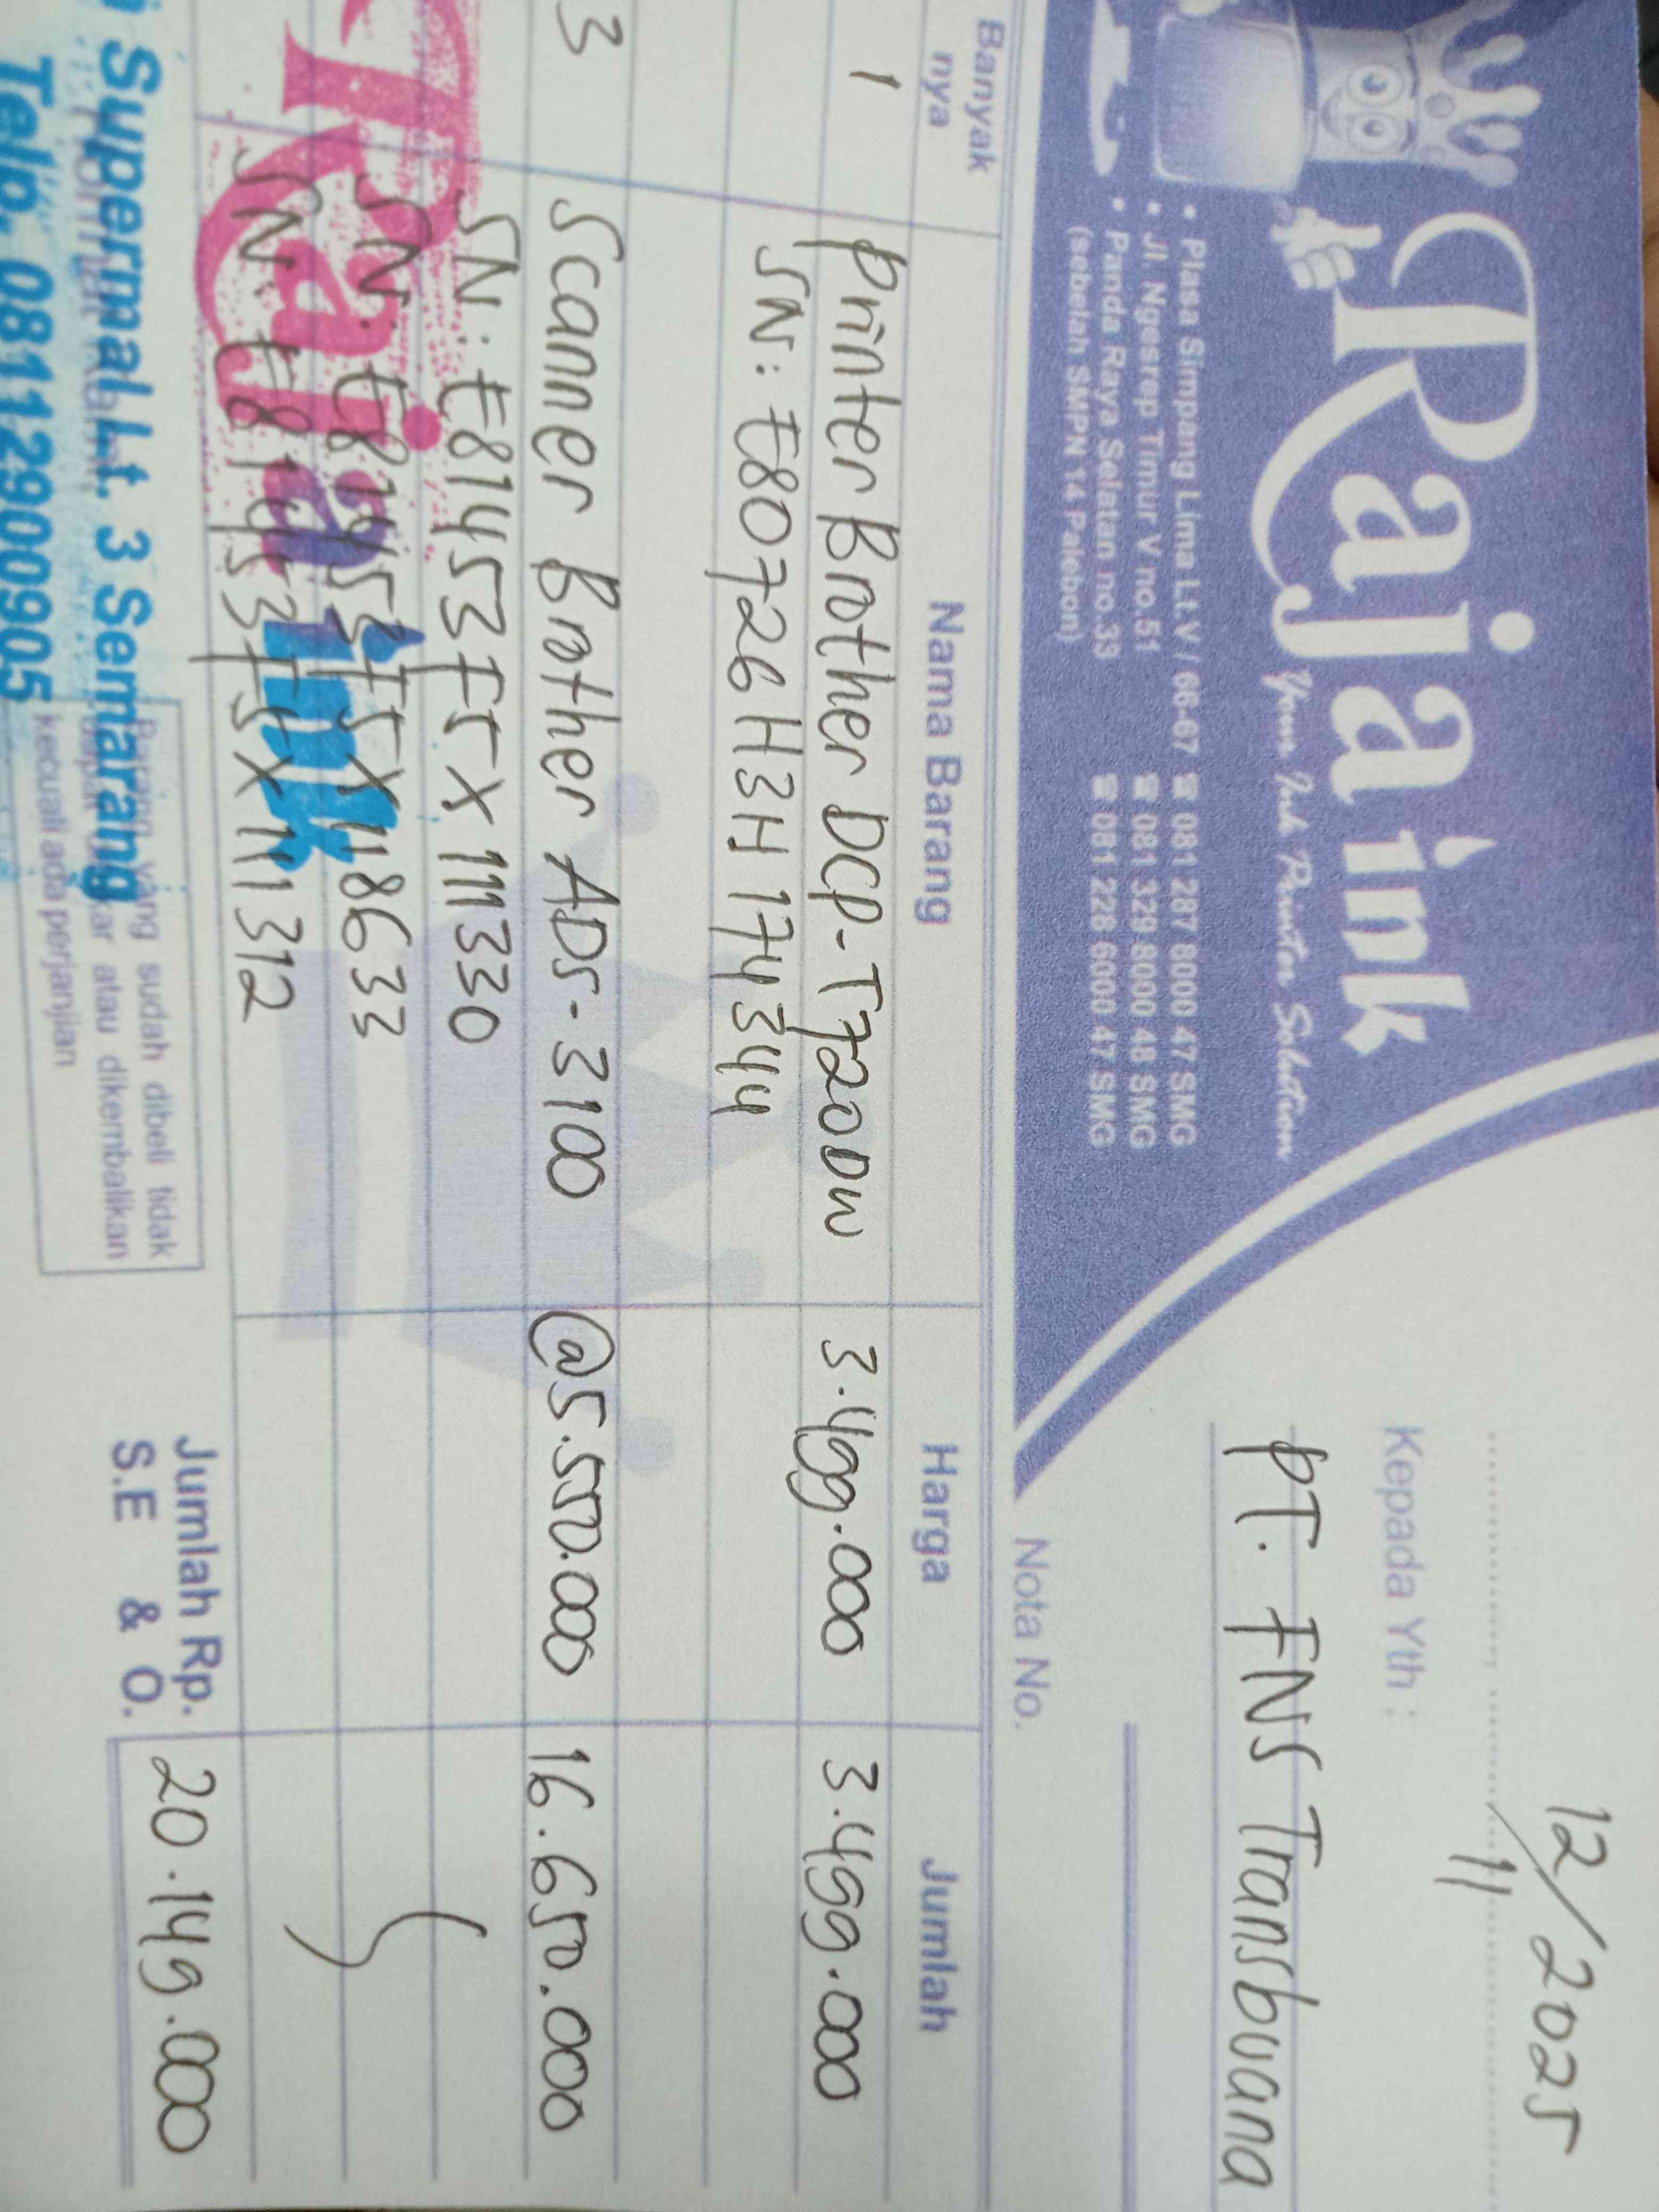 Raja ink
Your Ink Printer Solution
• Plasa Simpang Lima Lt.V / 66-67 ☎ 081 287 8000 47 SMG
• Jl. Ngesrep Timur V no.51 ☎ 081 329 8000 48 SMG
• Panda Raya Selatan no.33 ☎ 081 228 6000 47 SMG
(sebelah SMPN 14 Palebon)
12/11 2025
Kepada Yth :
PT. FNS Transbuana
Nota No.
Banyak nya Nama Barang Harga Jumlah
1 Printer Brother DCP-T720DW 3.499.000 3.499.000
SN: E80726H3H174344
3 Scanner Brother ADS-3100 @5.550.000 16.650.000
SN: E81453F5X111330
SN: E81453F5X118633
SN: E81453F5X111312
Raja ink
Supermal Lt. 3 Semarang
Telp. 08112900905
Barang yang sudah dibeli tidak
atau dikembalikan
kecuali ada perjanjian
Jumlah Rp. 20.149.000
S.E & O.